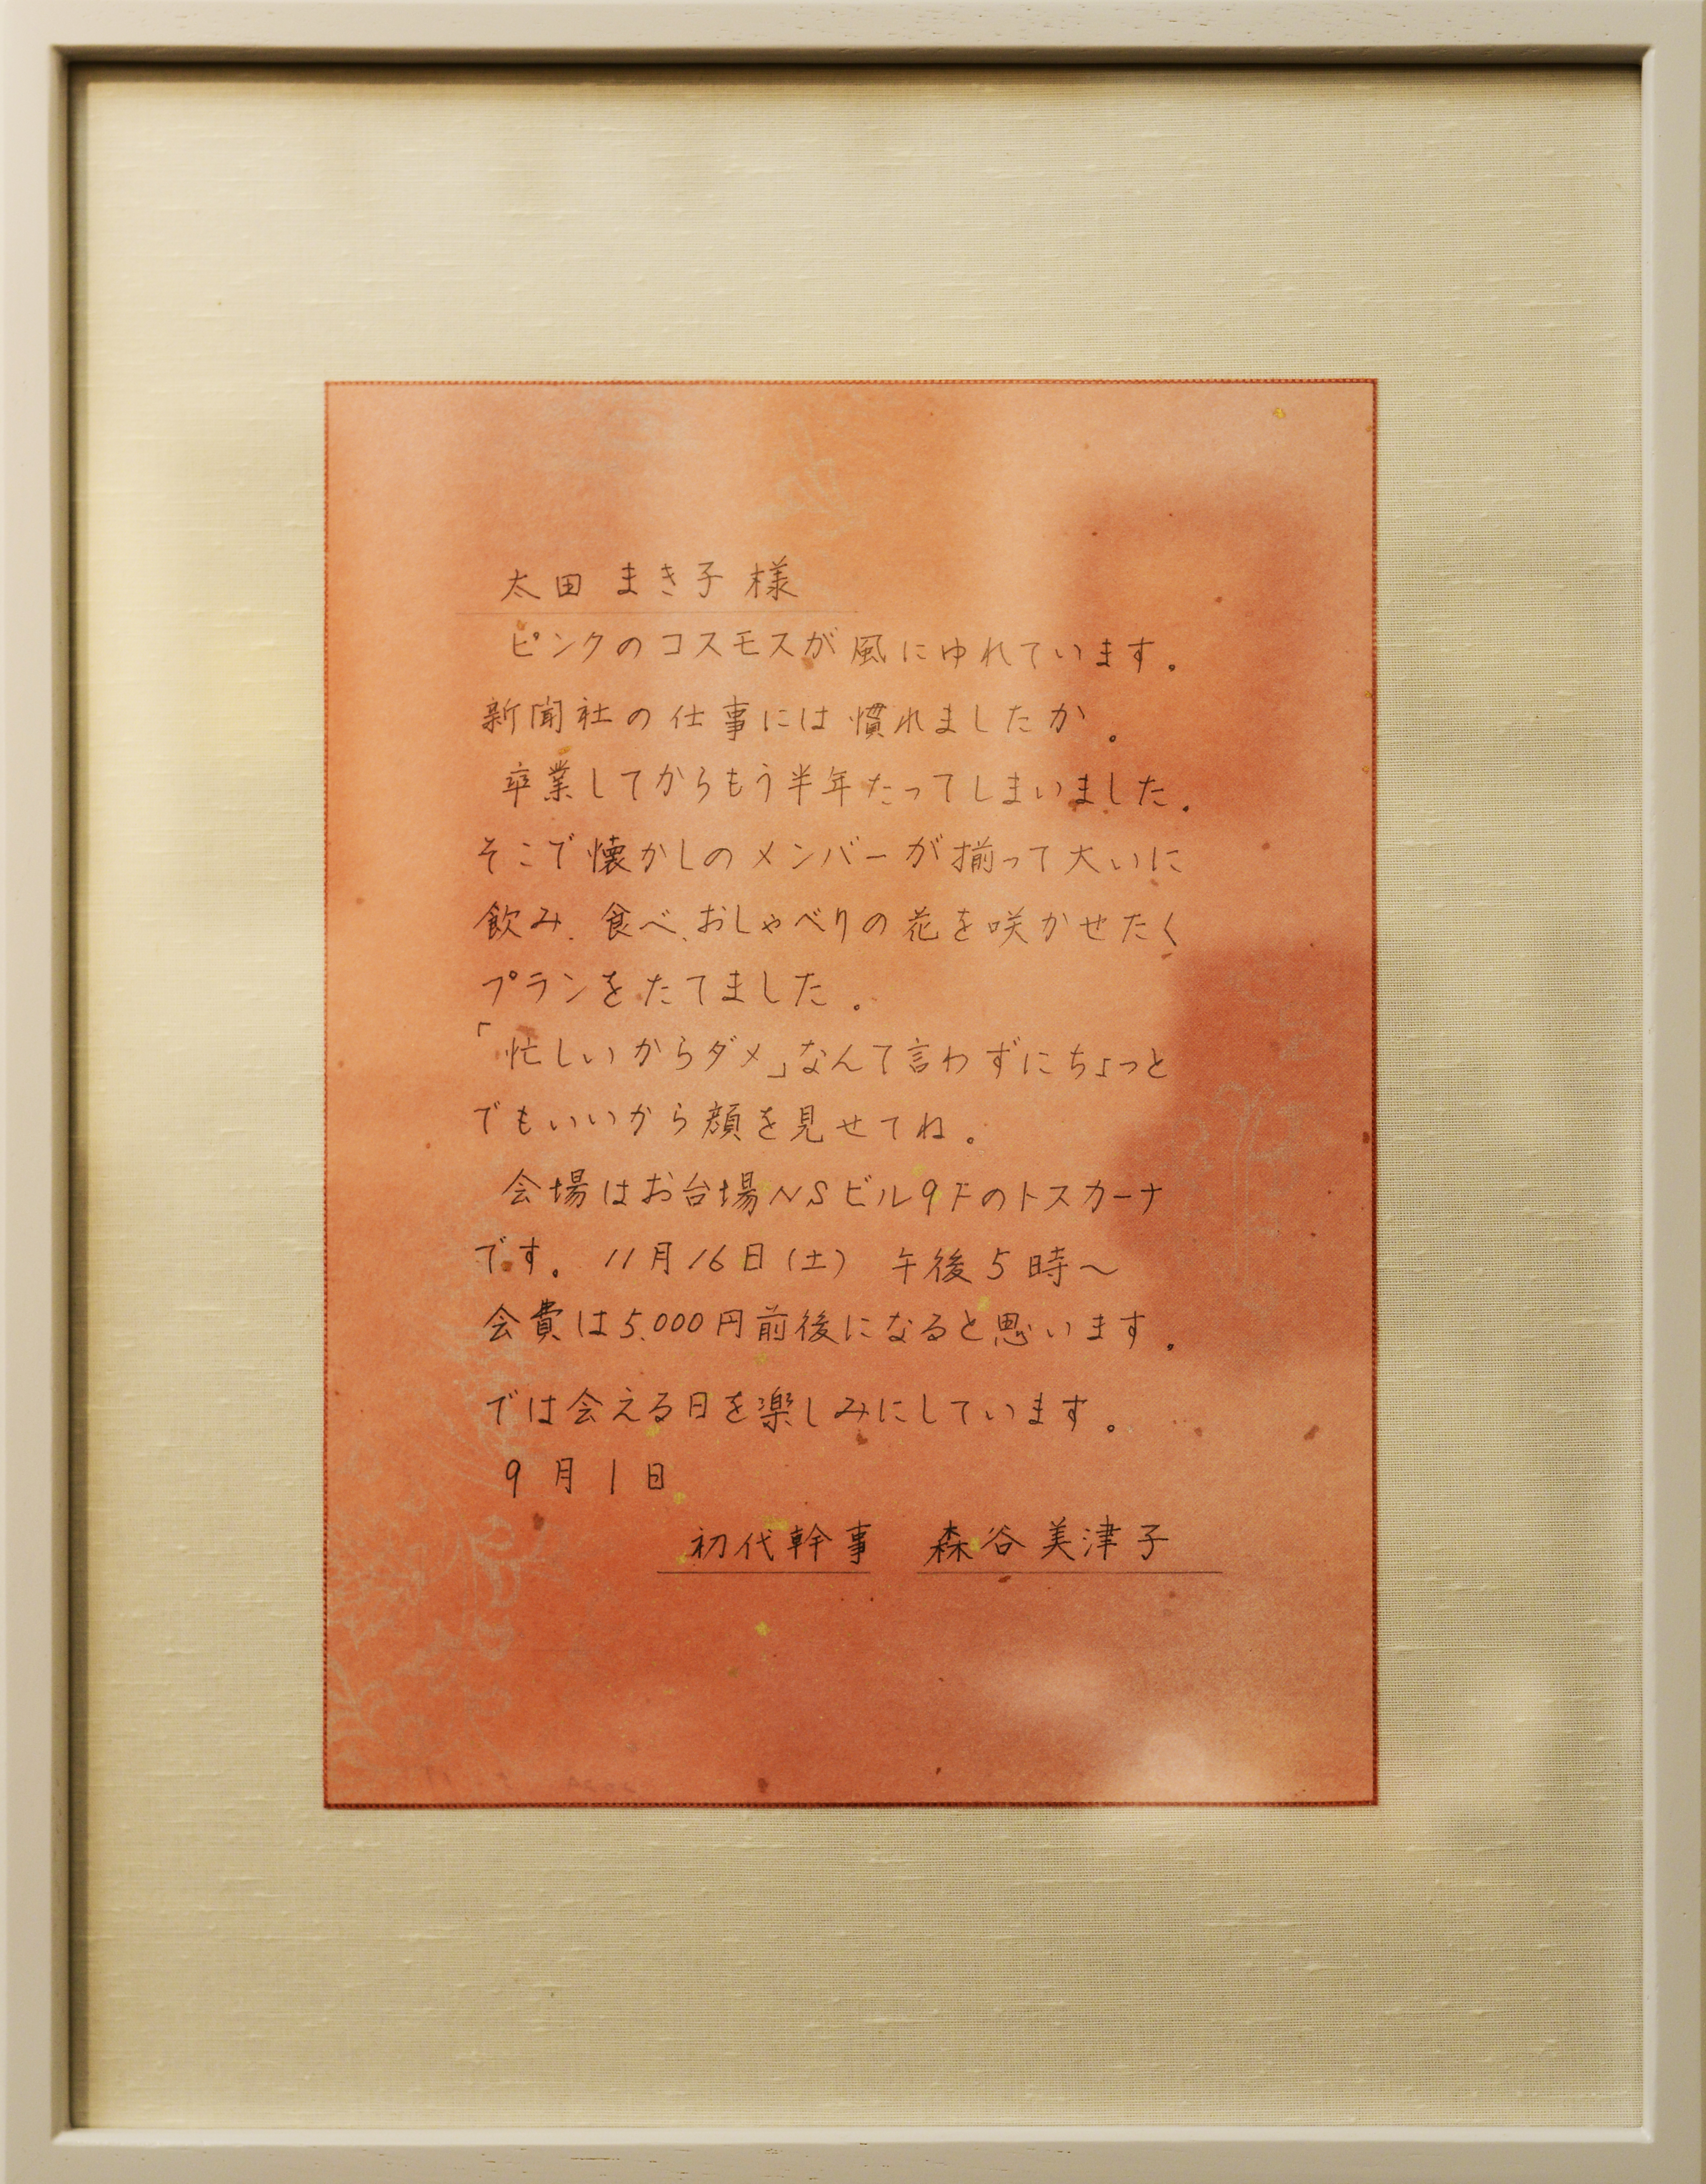 太田 まき子 様
ピンクのコスモスが風にゆれています。
新聞社の仕事には慣れましたか。
卒業してからもう半年たってしまいました。
そこで懐かしのメンバーが揃って大いに
飲み、食べ、おしゃべりの花を咲かせたく
プランをたてました。
「忙しいからダメ」なんて言わずにちょっと
でもいいから顔を見せてね。
会場はお台場NSビル9Fのトスカーナ
です。 11月16日(土) 午後5時〜
会費は5,000円前後になると思います。
では会える日を楽しみにしています。
9月1日
初代幹事 森谷美津子